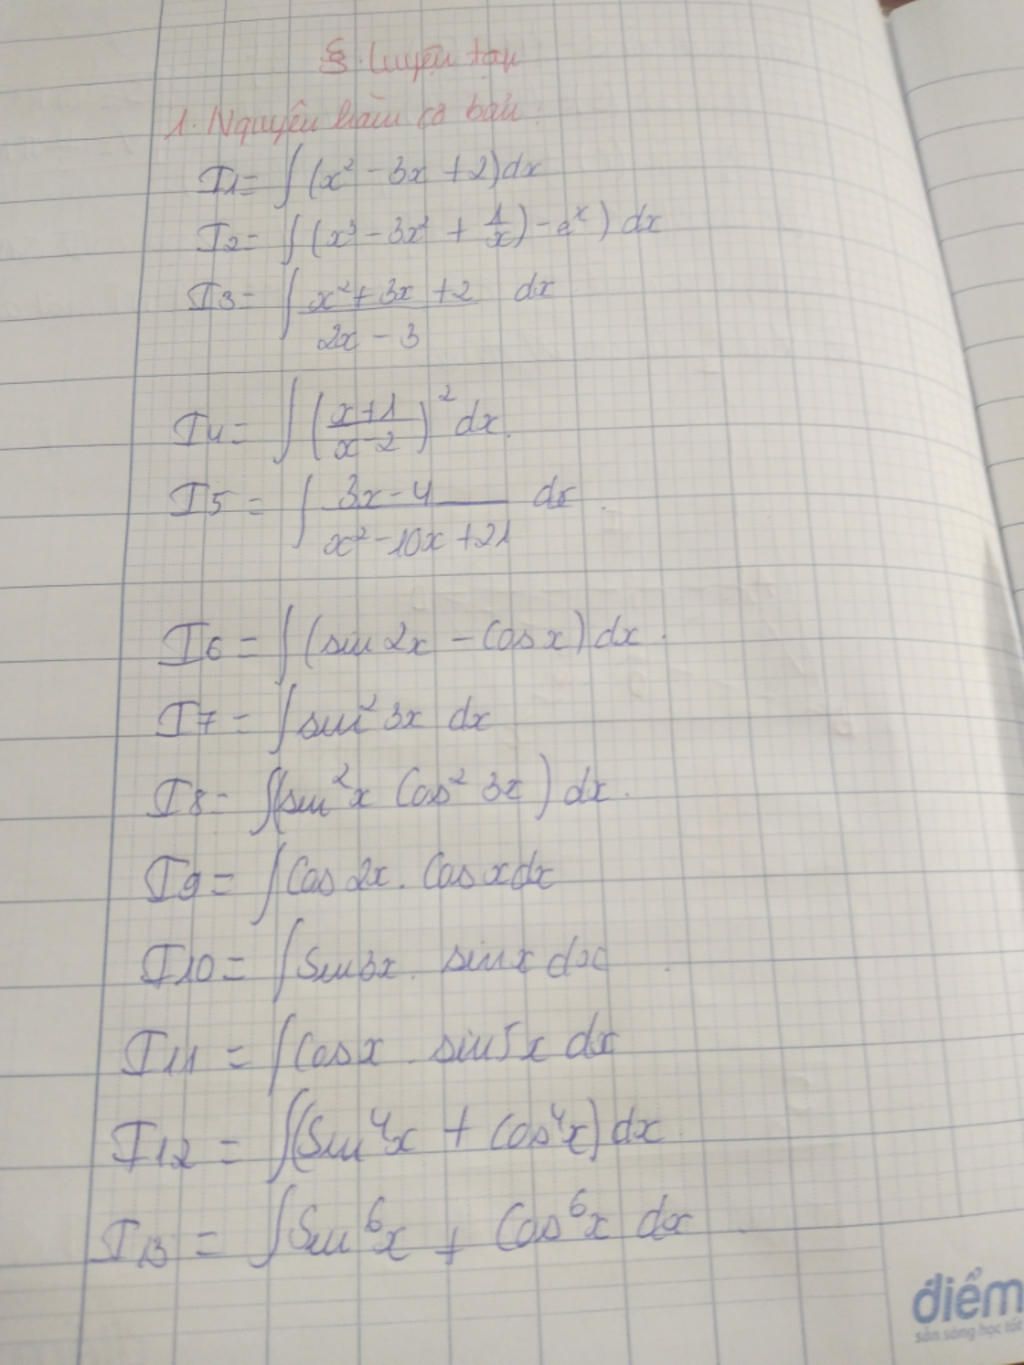 §. Luyện tập
1. Nguyên hàm cơ bản.
I1 = ∫(x² - 3x + 2)dx
I2 = ∫(x³ - 3x² + 1/x) - eˣ) dx
I3 = ∫ (x² + 3x + 2)/(2x - 3) dx
I4 = ∫ ((x+1)/(x-2))² dx.
I5 = ∫ (3x - 4)/(x² - 10x + 21) dx.
I6 = ∫(sin 2x - Cos x) dx.
I7 = ∫ sin² 3x dx
I8 = ∫(sin² x Cos² 3x) dx.
I9 = ∫ Cos 2x . Cos x dx
I10 = ∫ Sin 3x . sin x dx
I11 = ∫ Cos x . sin 5x dx
I12 = ∫(Sin⁴x + Cos⁴x) dx
I13 = ∫ Sin⁶x + Cos⁶x dx
điểm
sẵn sàng học tốt